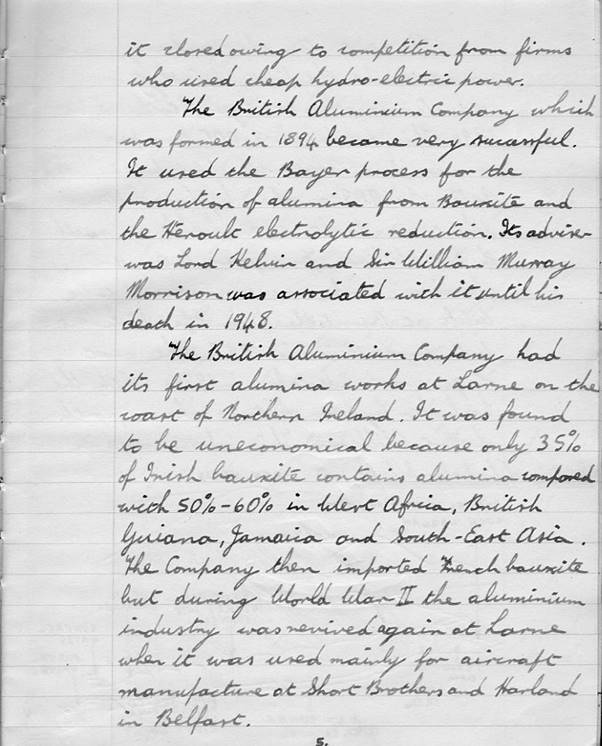 it closed owing to competition from firms
who used cheap hydro-electric power.
The British Aluminium Company which
was formed in 1894 became very sucessful.
It used the Bayer process for the
production of alumina from Bauxite and
the Heroult electrolytic reduction. Its adviser
was Lord Kelvin and Sir William Murray
Morrison was associated with it until his
death in 1948.
The British Aluminium Company had
its first alumina works at Larne on the
coast of Northern Ireland. It was found
to be uneconomical because only 35%
of Irish bauxite contains alumina compared
with 50%-60% in West Africa, British
Guiana, Jamaica and South-East Asia.
The Company then imported French bauxite
but during World War II the aluminium
industry was revived again at Larne
when it was used mainly for aircraft
manufacture at Short Brothers and Harland
in Belfast.
5.